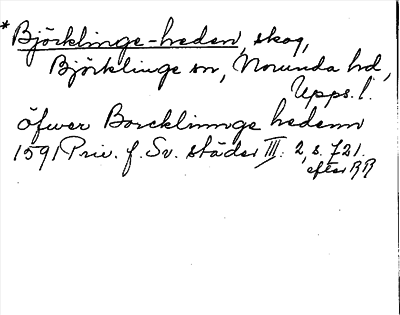 * Björklinge-heden, skog,
Björklinge sn, Norunda hd,
Upps. l.
öfwer Borcklinnge hedenn
1591 Priv. f. Sv. städer III: 2, s. 721.
efter RR